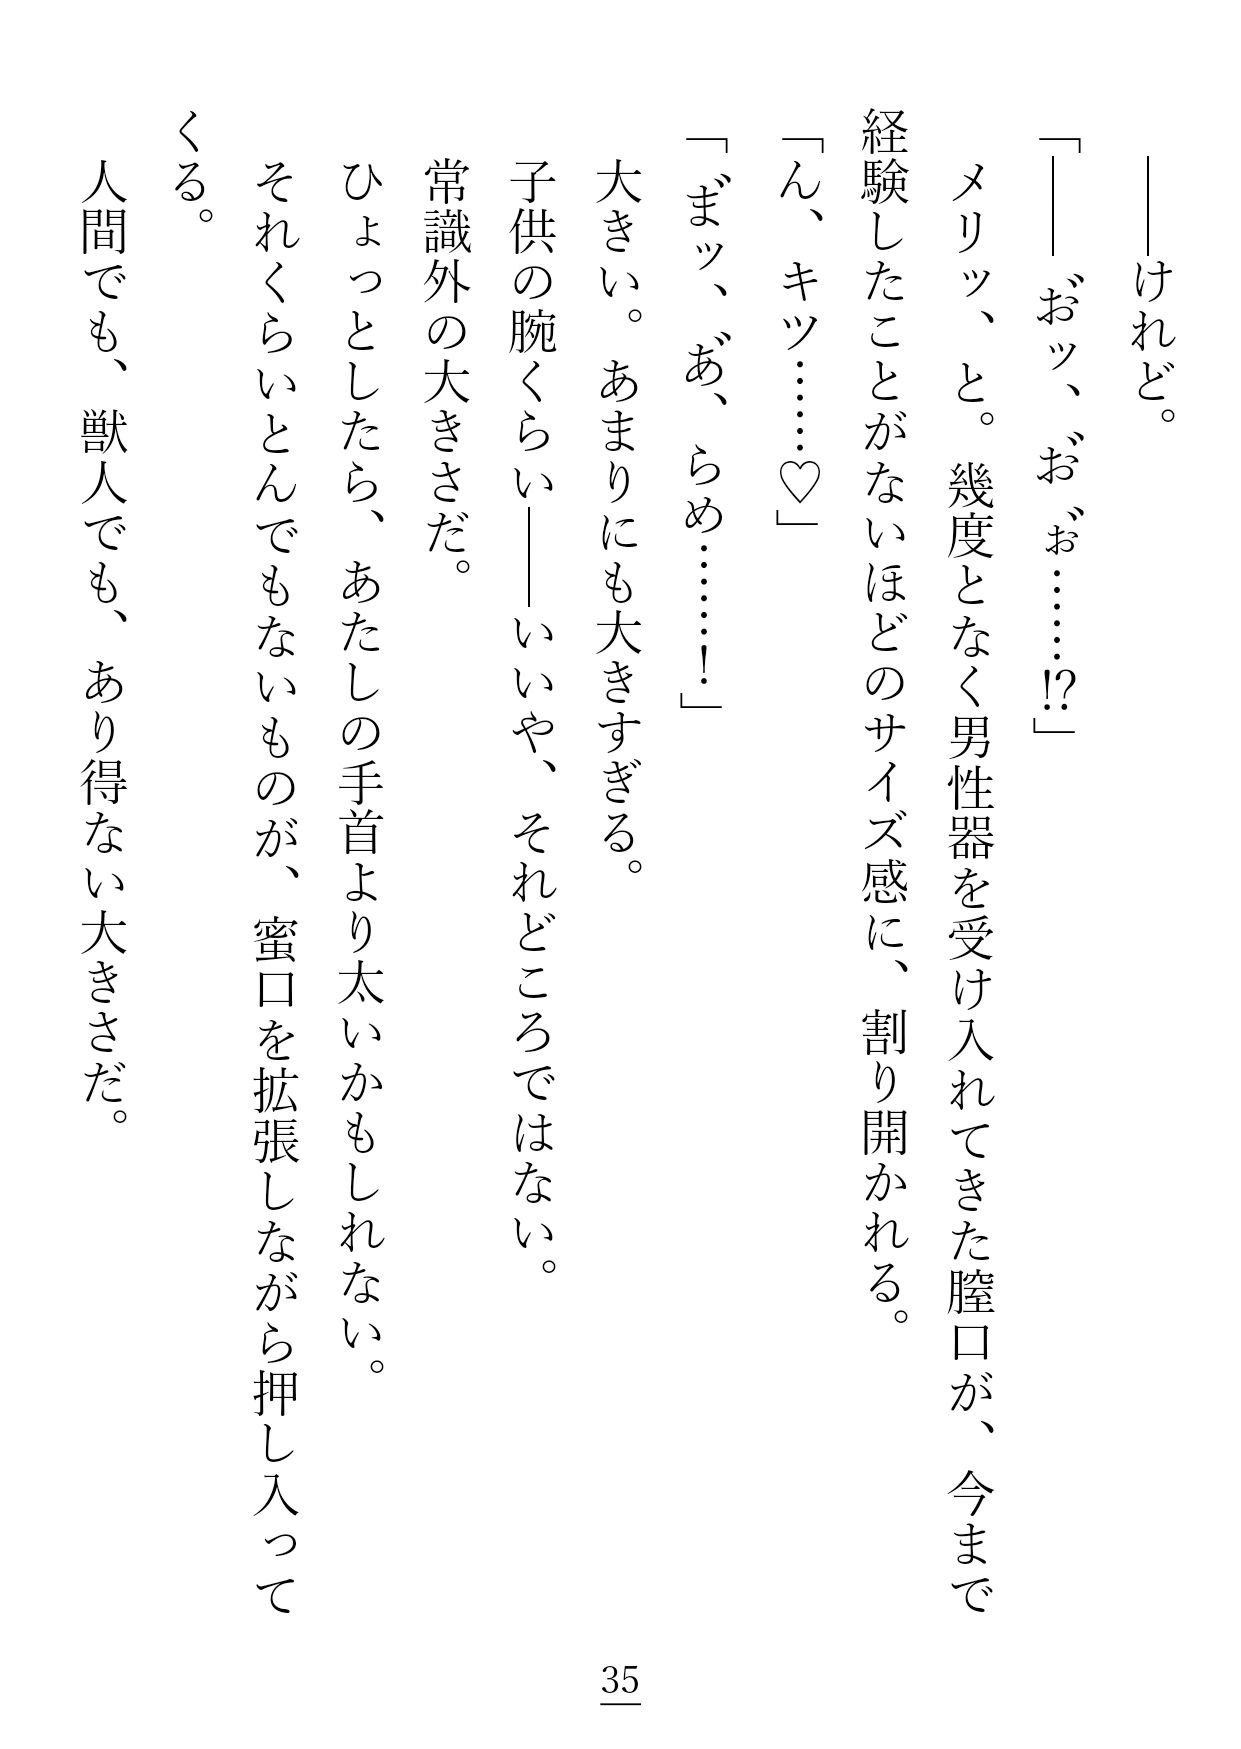 ――けれど。
「――お゛ッ、お゛、ぉ゛……!?」
メリッ、と。幾度となく男性器を受け入れてきた膣口が、今まで
経験したことがないほどのサイズ感に、割り開かれる。
「ん、キツ……♡」
「ま゛ッ、あ゛、らめ……！」
大きい。あまりにも大きすぎる。
子供の腕くらい――いいや、それどころではない。
常識外の大きさだ。
ひょっとしたら、あたしの手首より太いかもしれない。
それくらいとんでもないものが、蜜口を拡張しながら押し入って
くる。
人間でも、獣人でも、あり得ない大きさだ。
35